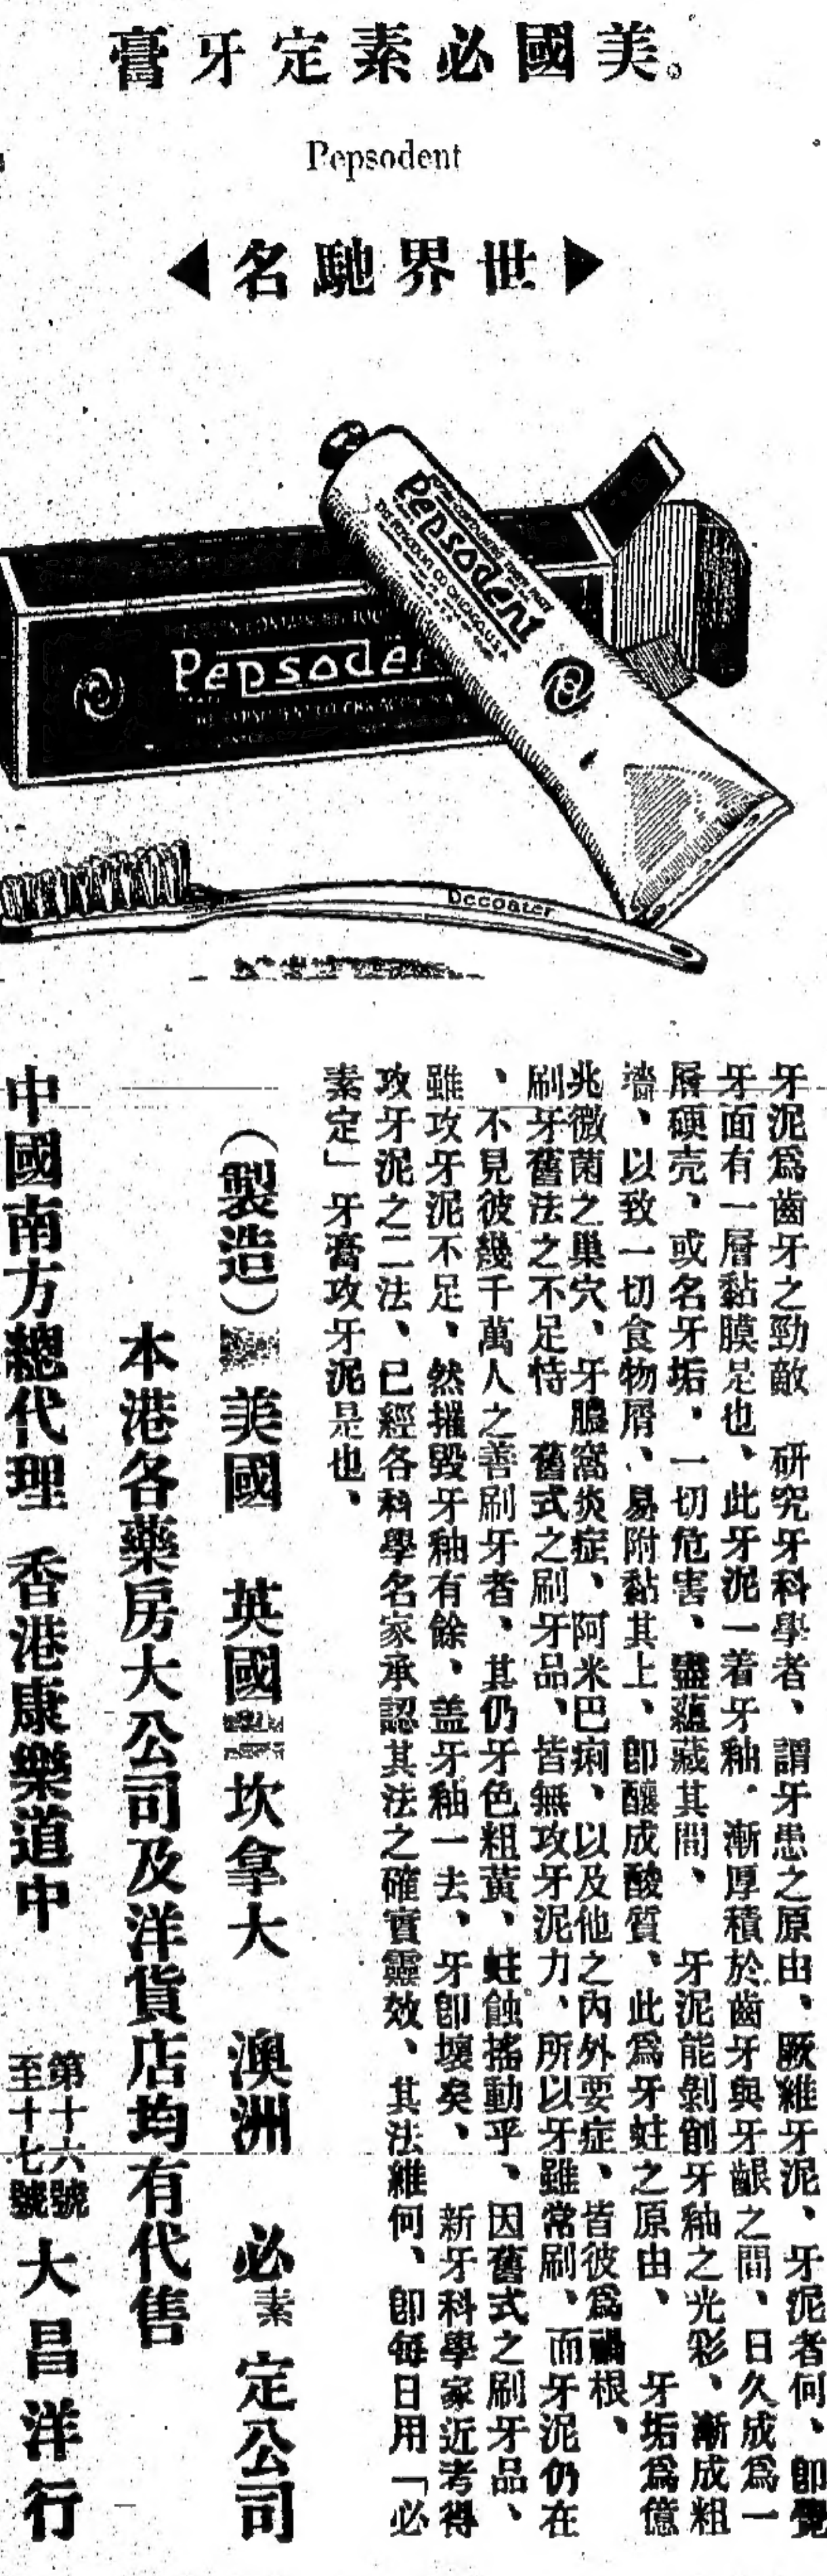 美國必素定牙膏
Pepsodent
世界馳名
Pepsodent
THE PEPSODENT CO. CHICAGO, U.S.A.
Pepsode
Decoater
牙泥爲齒牙之勁敵 研究牙科學者、謂牙患之原由、厥維牙泥、牙泥者何、卽覺
牙面有一層黏膜是也、此牙泥一着牙釉、漸厚積於齒牙與牙齦之間、日久成爲一
層硬壳、或名牙垢、一切危害、盡蘊藏其間、 牙泥能剝創牙釉之光彩、漸成粗
濇、以致一切食物屑、易附黏其上、卽釀成酸質、此爲牙蛀之原由、 牙垢爲億
兆微菌之巢穴、牙膿窩炎症、阿米巴痢、以及他之內外要症、皆彼爲禍根、
刷牙舊法之不足恃 舊式之刷牙品、皆無攻牙泥力、所以牙雖常刷、而牙泥仍在
、不見彼幾千萬人之善刷牙者、其仍牙色粗黃、蛀蝕搖動乎、因舊式之刷牙品、
雖攻牙泥不足、然摧毀牙釉有餘、盖牙釉一去、牙卽壞矣、 新牙科學家近考得
攻牙泥之二法、已經各科學名家承認其法之確實靈效、其法維何、卽每日用「必
素定」牙膏攻牙泥是也、
（製造） 美國 英國 坎拿大 澳洲 必素定公司
本港各藥房大公司及洋貨店均有代售
中國南方總代理 香港康樂道中 第十六號至十七號 大昌洋行